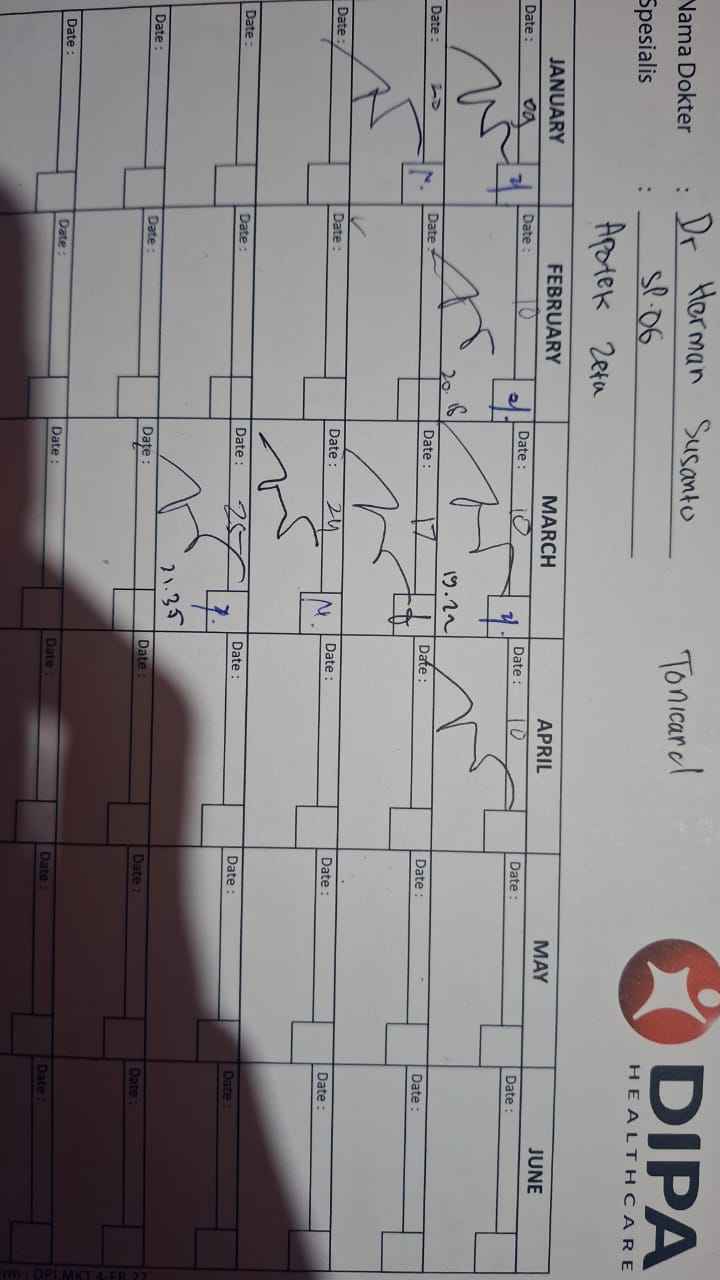 Nama Dokter : Dr Herman Susanto
Spesialis : SP.OG
Apotek Zeta
Tonicard
DIPA
HEALTHCARE
JANUARY FEBRUARY MARCH APRIL MAY JUNE
Date : 09 Date : 10 Date : 10 Date : 10 Date : Date :
20.18 19.22
Date : 20 Date : Date : 17 Date : Date : Date :
Date : Date : Date : 24 Date : Date : Date :
Date : Date : Date : 25 Date : Date : Date :
21.35
Date : Date : Date : Date : Date : Date :
Date : Date : Date : Date : Date : Date :